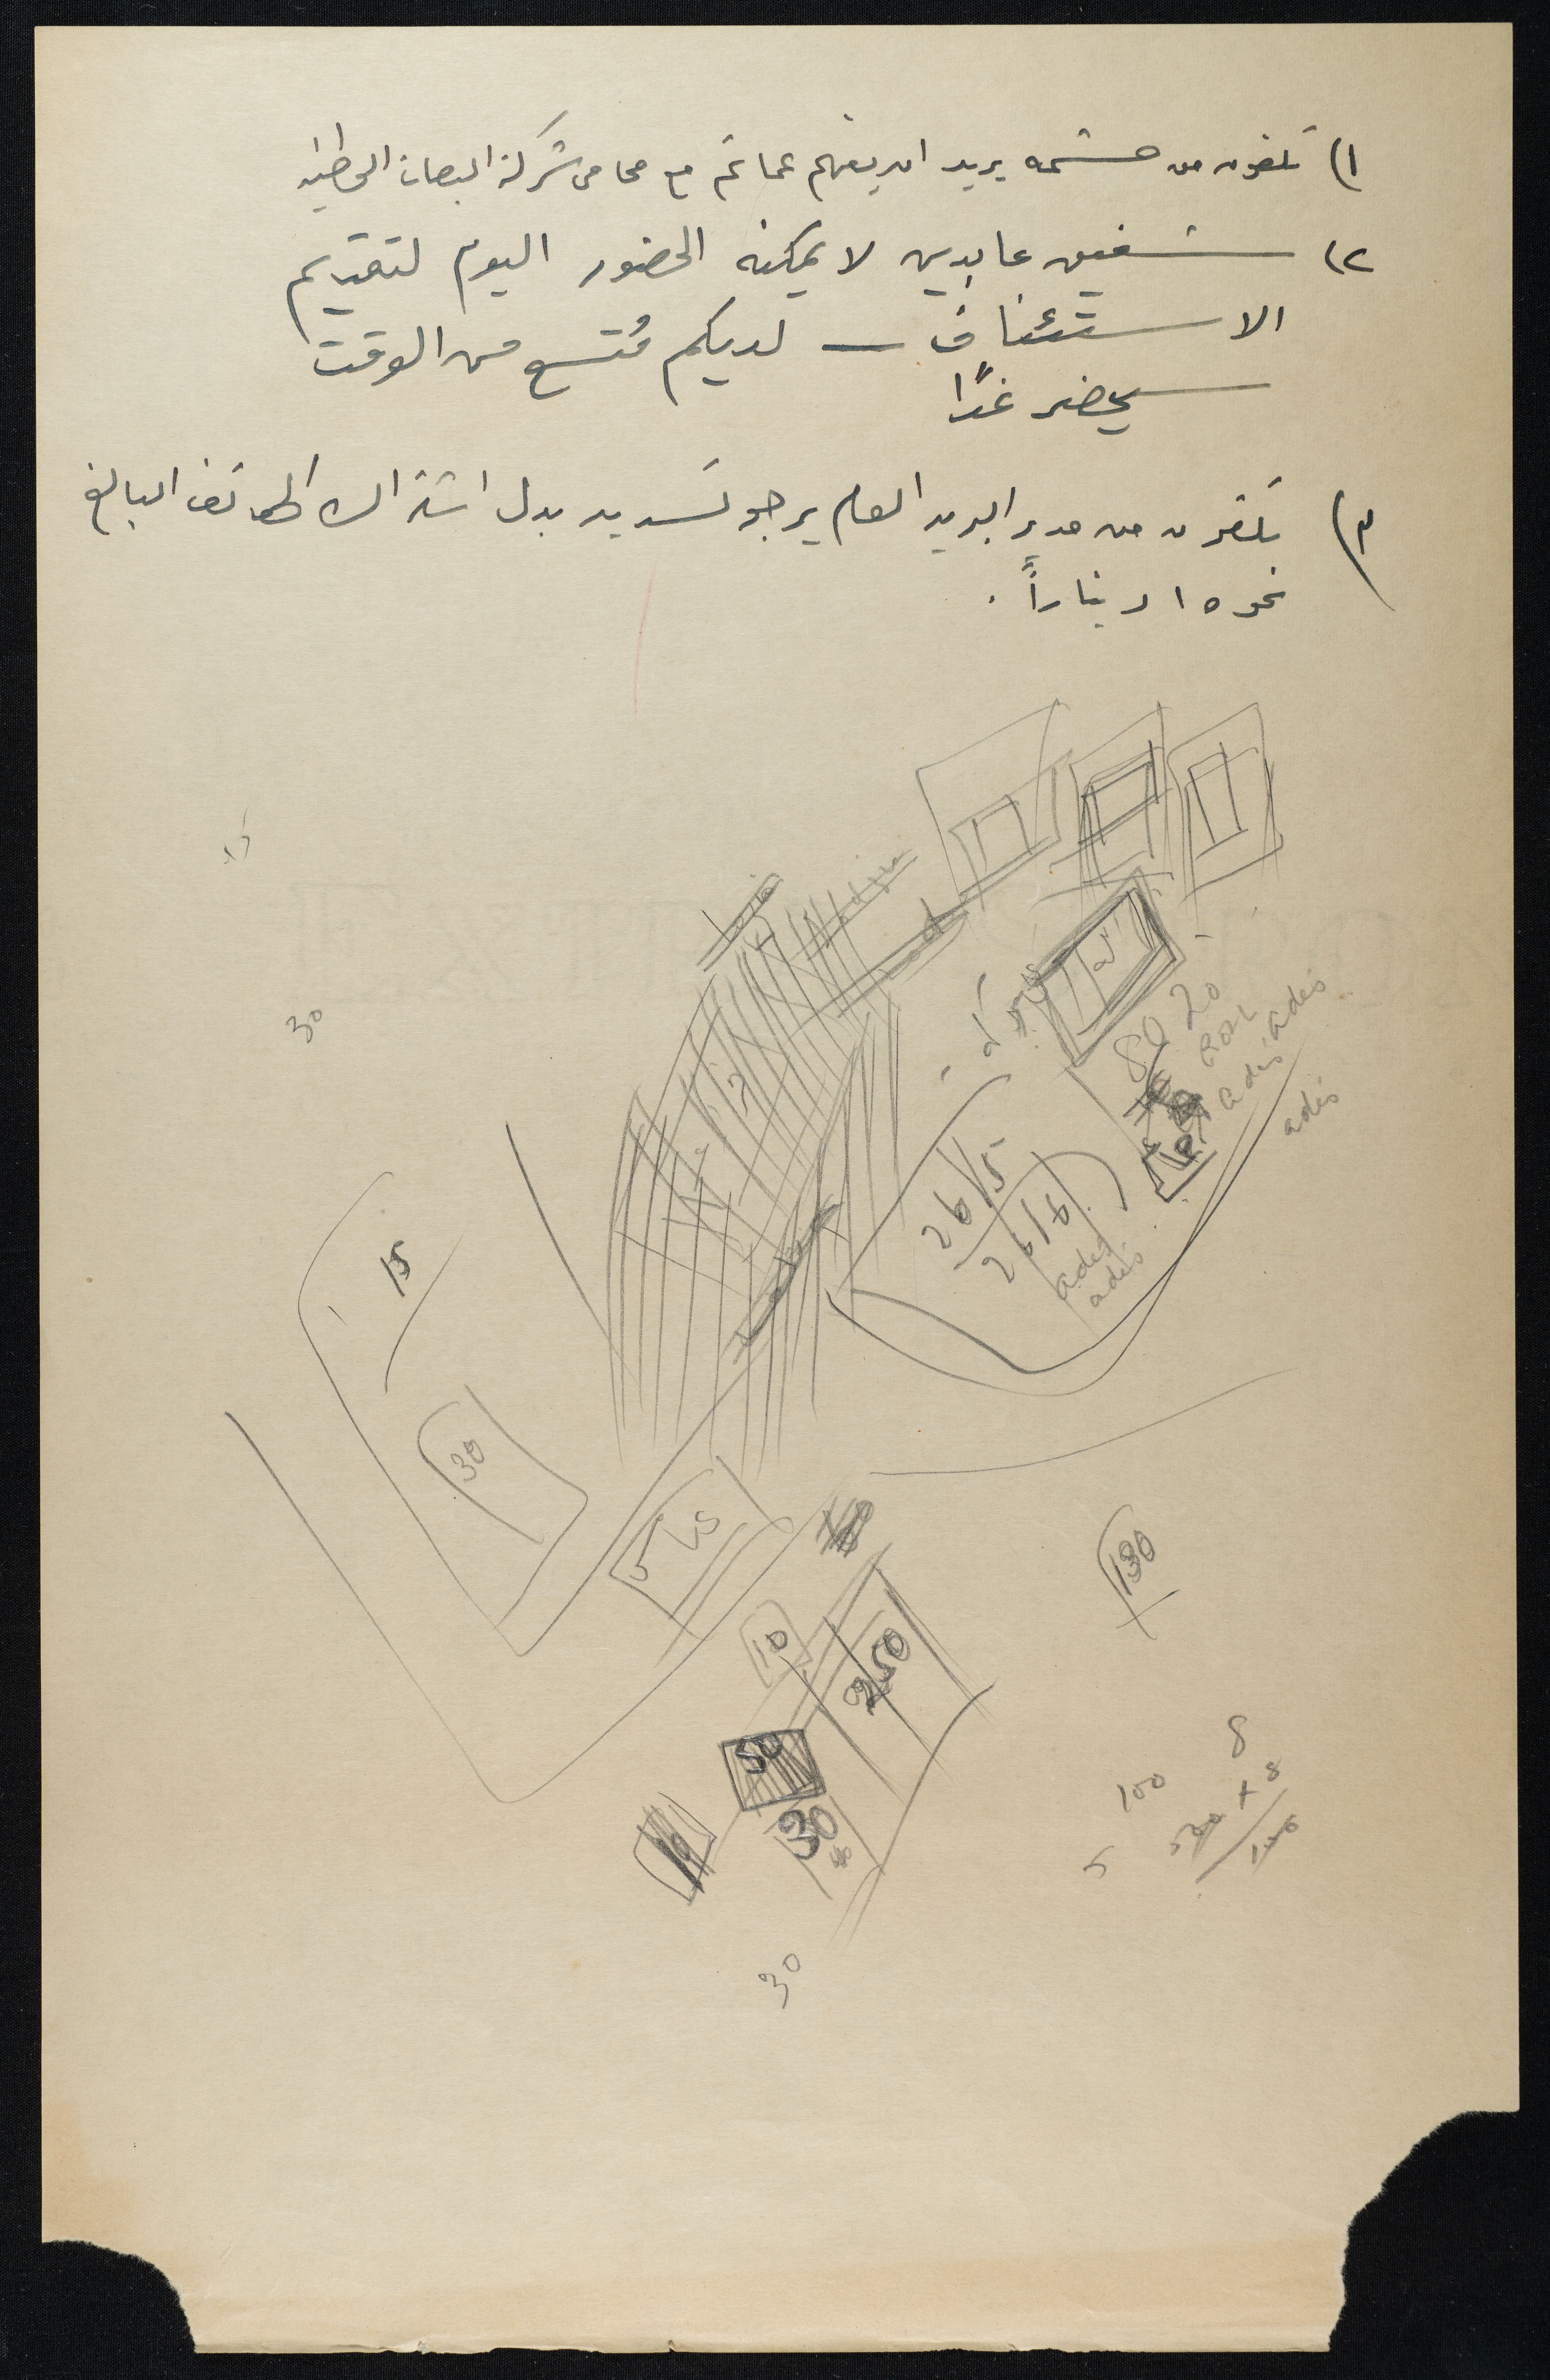 ١) تلفون من حشمه يريد ان يفهم عما تم مع محامي شركة البصات الوطنيه
٢) شفيق عابدين لا يمكنه الحضور اليوم لتقديم
الاستئناف — لديكم متسع من الوقت
سيحضر غدًا
٣) تلفون من مدير البريد العام يرجو تسديد بدل اشتراك الهاتف البالغ
نحو ١٥ دينارًا .
80 20
adis
adis
adis
30
26/5
26/6
adis
adis
15
30
130
10
250
50
8
100
30
5
30